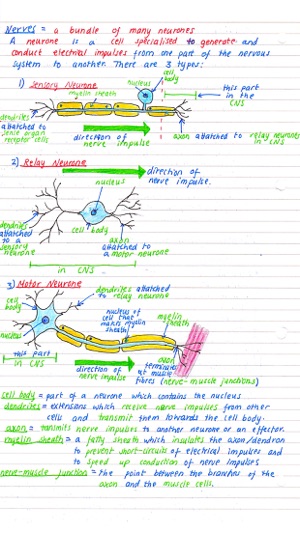 Nerves = a bundle of many neurones
A neurone is a cell specialised to generate and
conduct electrical impulses from one part of the nervous
system to another. There are 3 types:
1) Sensory Neurone
nucleus
cell body
myelin sheath
this part
in the
CNS
dendrites
attatched to
sense organ
receptor cells
direction of
nerve impulse
axon attatched to relay neurones
in CNS
2) Relay Neurone
direction of
nerve impulse.
nucleus
cell body
dendrites
attatched
to a
sensory
neurone
axon
attatched to
a motor neurone
in CNS
3) Motor Neurone
dendrites attatched
to relay neurone
cell
body
nucleus of
cell that
makes myelin
sheath
myelin
sheath
nucleus
this part
in CNS
direction of
nerve impulse
axon
terminates
at muscle
fibres (nerve-muscle junctions)
cell body = part of a neurone which contains the nucleus
dendrites = extensions which receive nerve impulses from other
cells and transmit them towards the cell body.
axon = transmits nerve impulses to another neurone or an effector.
myelin sheath = a fatty sheath which insulates the axon/dendron
to prevent short-circuits of electrical impulses and
to speed up conduction of nerve impulses
nerve-muscle junction = the point between the branches of the
axon and the muscle cells.